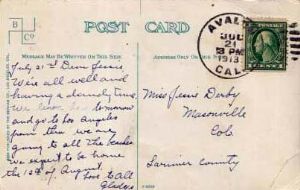 B
Co
POST CARD
MESSAGE MAY BE WRITTEN ON THIS SIDE
ADDRESS ONLY ON THIS SIDE
AVALON
JUL
21
3 PM
1913
CAL.
July 21st Dear Jessie
We're all well and
having a dandy time.
We leave here tomorrow
and go to Los Angeles
from there we are
going to all the beaches
we expect to be home
the 12th of August.
Love to All
Gladys
Miss Jessie Derby
Masonville
Colo
Larimer County